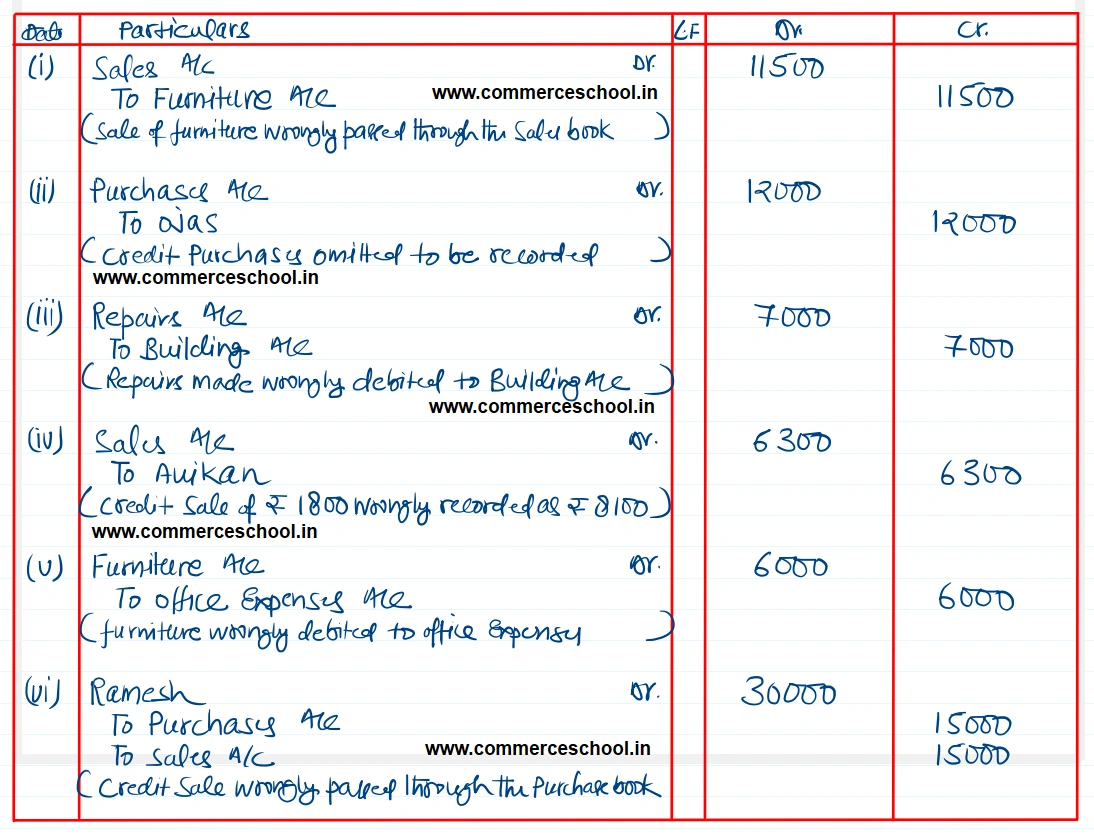 Date Particulars L.F Dr. Cr.
(i) Sales A/c Dr. 11500
To Furniture A/c www.commerceschool.in 11500
(Sale of furniture wrongly passed through the Sales book)
(ii) Purchases A/c Dr. 12000
To Ojas 12000
(Credit Purchases omitted to be recorded)
www.commerceschool.in
(iii) Repairs A/c Dr. 7000
To Building A/c 7000
(Repairs made wrongly debited to Building A/c)
www.commerceschool.in
(iv) Sales A/c Dr. 6300
To Avikan 6300
(Credit Sale of ₹ 1800 wrongly recorded as ₹ 8100)
www.commerceschool.in
(v) Furniture A/c Dr. 6000
To office Expenses A/c 6000
(furniture wrongly debited to office Expenses)
(vi) Ramesh Dr. 30000
To Purchases A/c 15000
To Sales A/c www.commerceschool.in 15000
(Credit Sale wrongly passed through the Purchase book